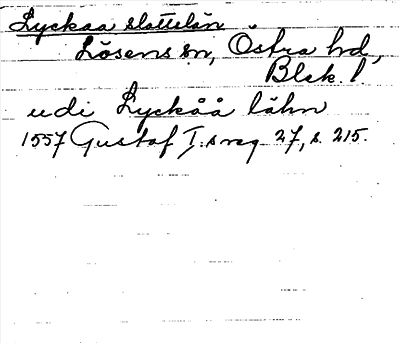 Lyckaa slottslän
Lösens sn, Östra hd,
Blek. l.
udi Lyckåå lähn
1557 Gustaf I:s reg 27, s. 215.